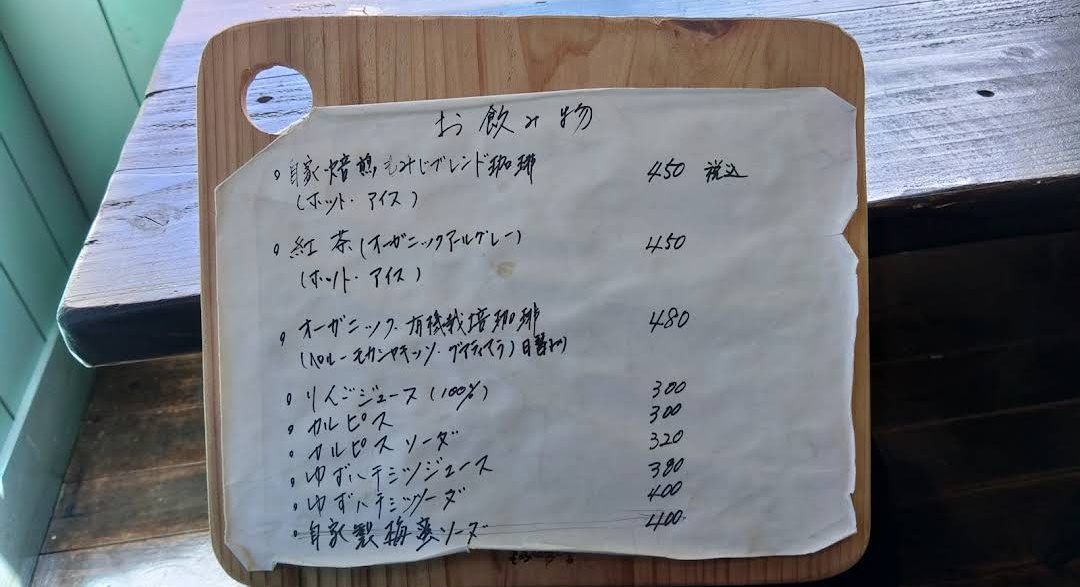 お飲み物
自家焙煎もみじブレンド珈琲 450 税込
(ホット・アイス)
紅茶(オーガニックアールグレー) 450
(ホット・アイス)
オーガニック有機栽培珈琲 480
(ペルー・モカンヤキッソ・グアティマラ)日替わり
りんごジュース(100%) 300
カルピス 300
カルピスソーダ 320
ゆずハチミツジュース 380
ゆずハチミツソーダ 400
自家製梅蜜ソーダ 400